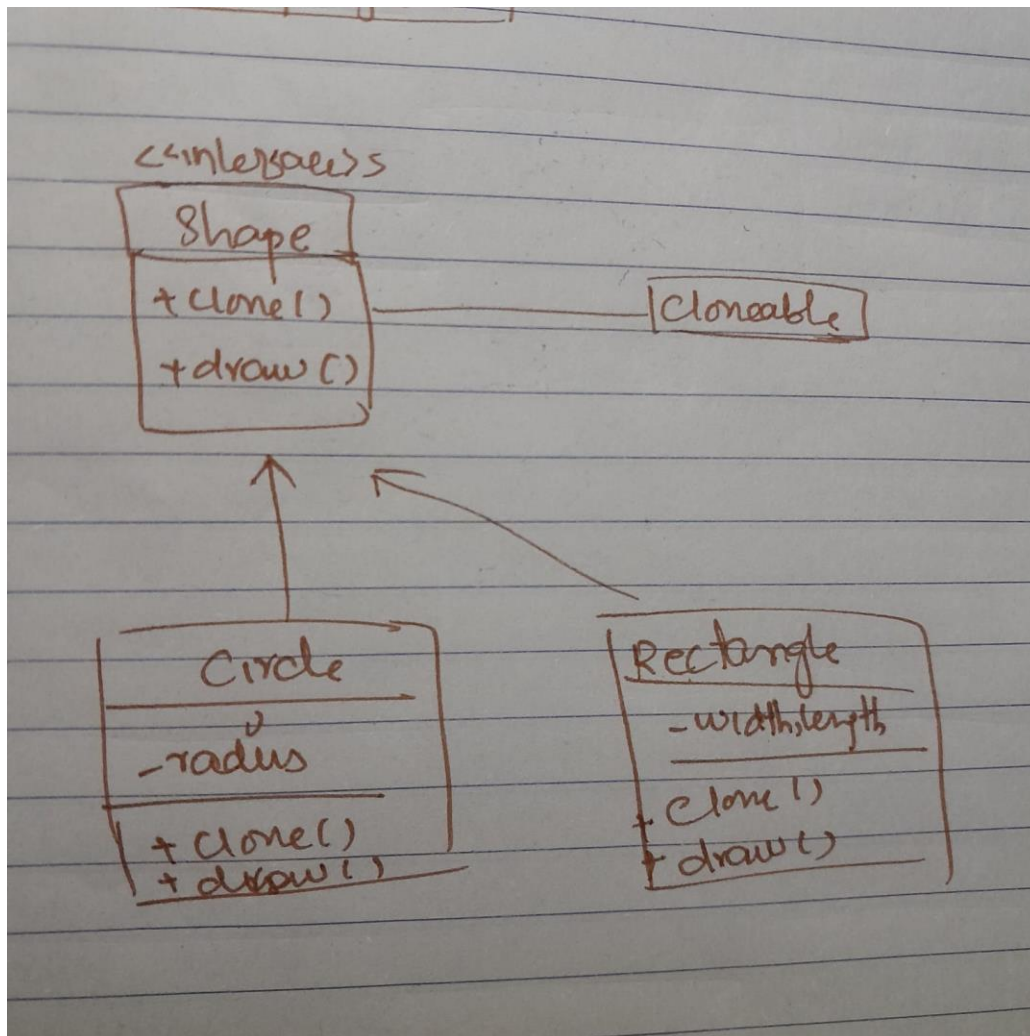 <<interface>>
Shape
+ clone()
+ draw()
Cloneable
Circle
- radius
+ clone()
+ draw()
Rectangle
- width, length
+ clone()
+ draw()